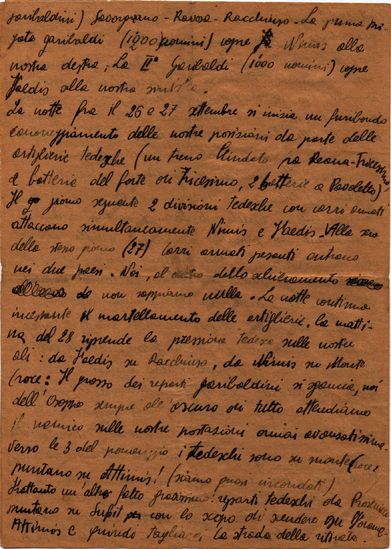 garibaldini) Savorgnano - Ravosa - Racchiuso. La prima bri
gata garibaldi (1200 uomini) copre Nimis alla
nostra destra; La IIª Garibaldi (1000 uomini) copre
Faedis alla nostra sinistra.
La notte fra il 26 e 27 settembre si inizia un furibondo
cannoneggiamento delle nostre posizioni da parte delle
artiglierie tedesche (un treno blindato fra Reana-Tricesimo
e batterie del forte di Tricesimo, 2 batterie a Paoletto)
Il giorno seguente 2 divisioni tedesche con carri armati
attaccano simultaneamente Nimis e Faedis. Alla sera
dello stesso giorno (27) carri armati pesanti entrano
nei due paesi. Noi, al centro dello schieramento
non sappiamo nulla. La notte continua
incessante il martellamento delle artiglierie, la matti
na del 28 riprende la pressione tedesca sulle nostre
ali: da Faedis su Racchiuso, da Nimis su Monte
Croce: Il grosso dei reparti garibaldini si sgancia, noi
dell'Osoppo sempre all'oscuro di tutto attendiamo
il nemico sulle nostre postazioni ormai avanzatissime.
verso le 3 del pomeriggio i tedeschi sono su monte Croce,
puntano su Attimis! (siamo quasi circondati)
Frattanto un altro fatto gravissimo: reparti tedeschi da
puntano su Subit con lo scopo di scendere su
Attimis e quindi tagliarci la strada della ritirata